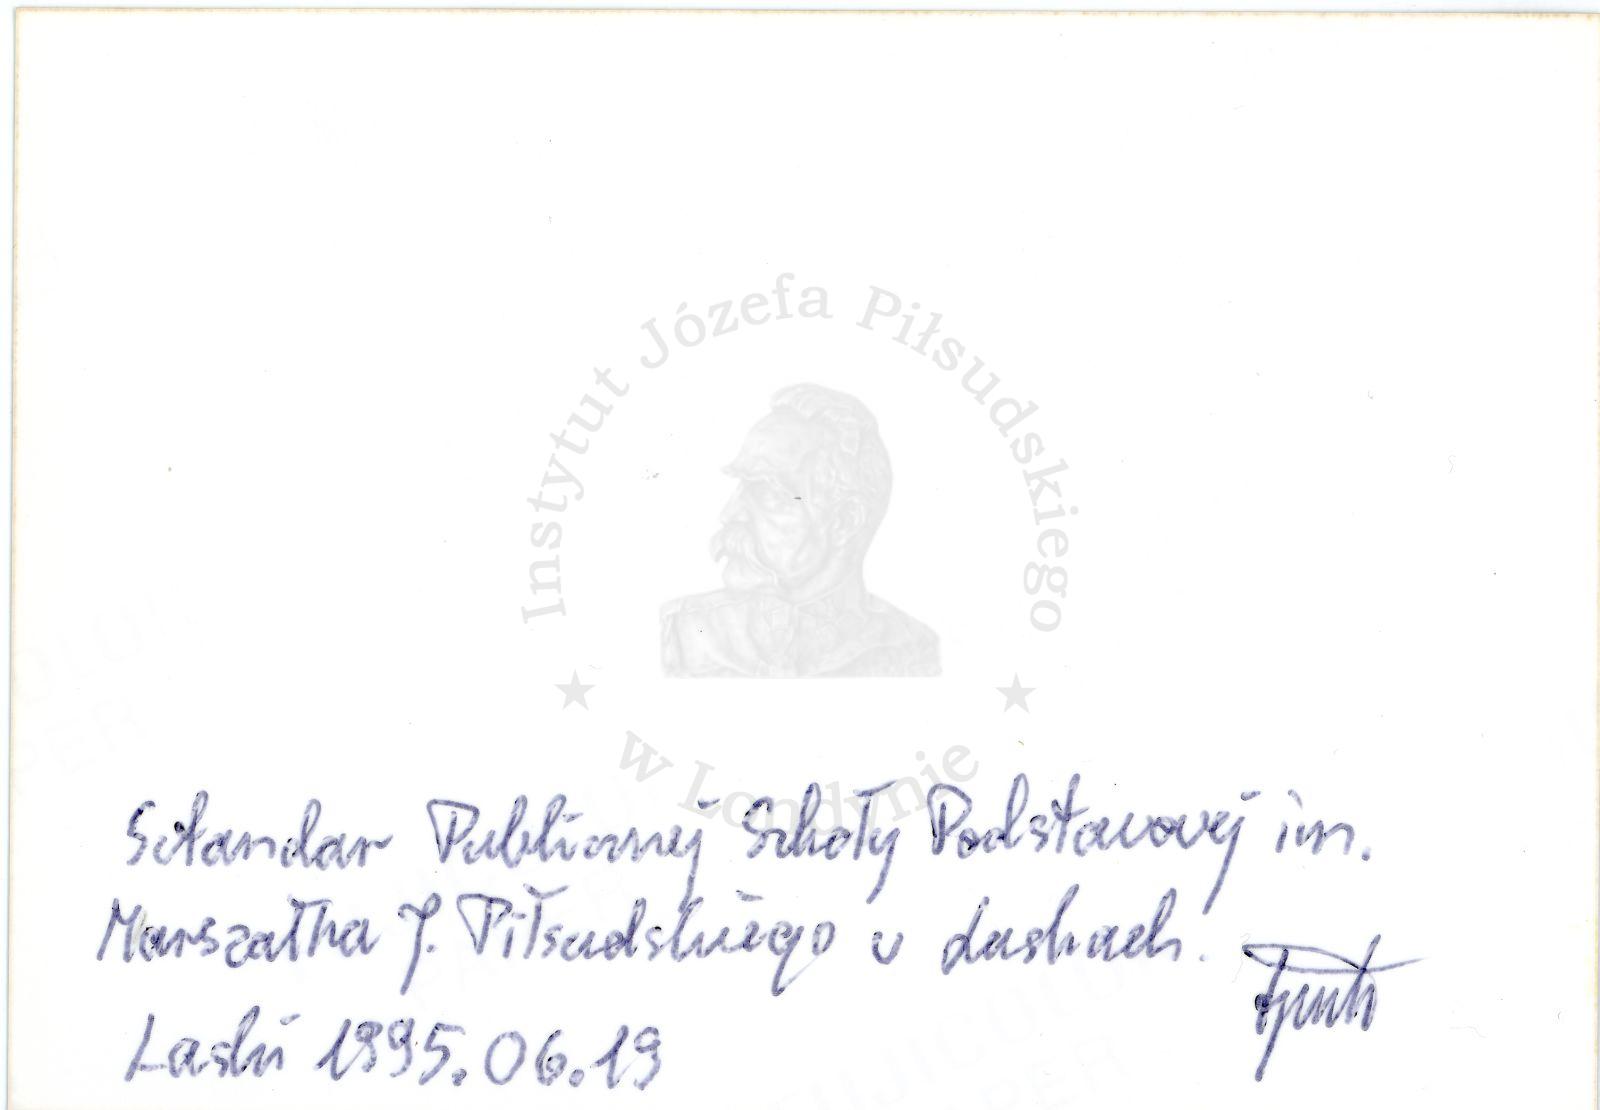 Instytut Józefa Piłsudskiego
w Londynie
Sztandar Publicznej Szkoły Podstawowej im.
Marszałka J. Piłsudskiego w Laskach.
Laski 1995.06.19